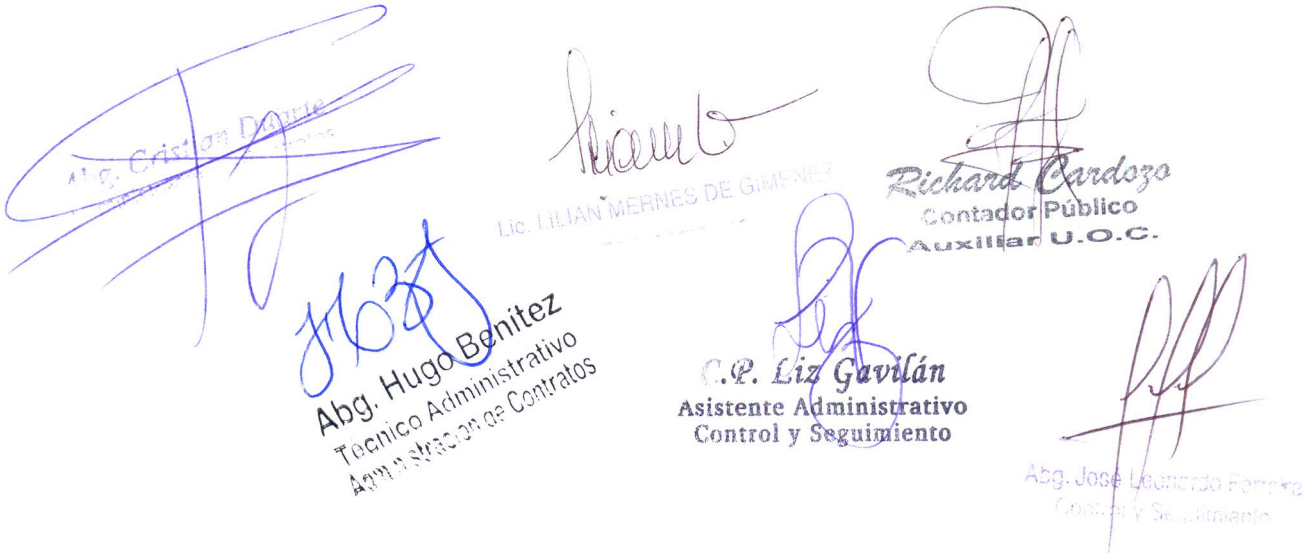 Abg. Cristian Duarte
Lic. LILIAN MERNES DE GIMENEZ
Richard Cardozo
Contador Público
Auxiliar U.O.C.
Abg. Hugo Benitez
Técnico Administrativo
Administracion de Contratos
C.P. Liz Gavilán
Asistente Administrativo
Control y Seguimiento
Abg. José Leonardo
Control y Seguimiento